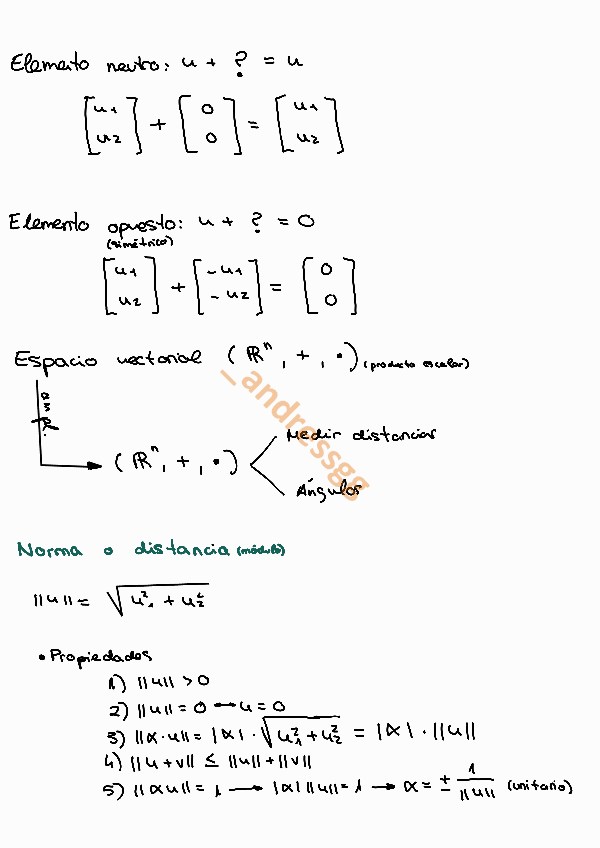 Elemento neutro: u + ? = u
[u1 u2] + [0 0] = [u1 u2]
Elemento opuesto: u + ? = 0
(simétrico)
[u1 u2] + [-u1 -u2] = [0 0]
Espacio vectorial (ℝⁿ, +, •) (producto escalar)
ampl.
(ℝⁿ, +, •)
Medir distancias
Ángulos
_andressgg
Norma o distancia (módulo)
||u|| = √(u₁² + u₂²)
• Propiedades
1) ||u|| > 0
2) ||u|| = 0 ⟷ u = 0
3) ||α·u|| = |α| · √(u₁² + u₂²) = |α| · ||u||
4) ||u + v|| ≤ ||u|| + ||v||
5) ||αu|| = 1 → |α| ||u|| = 1 → α = ± 1/||u|| (unitario)